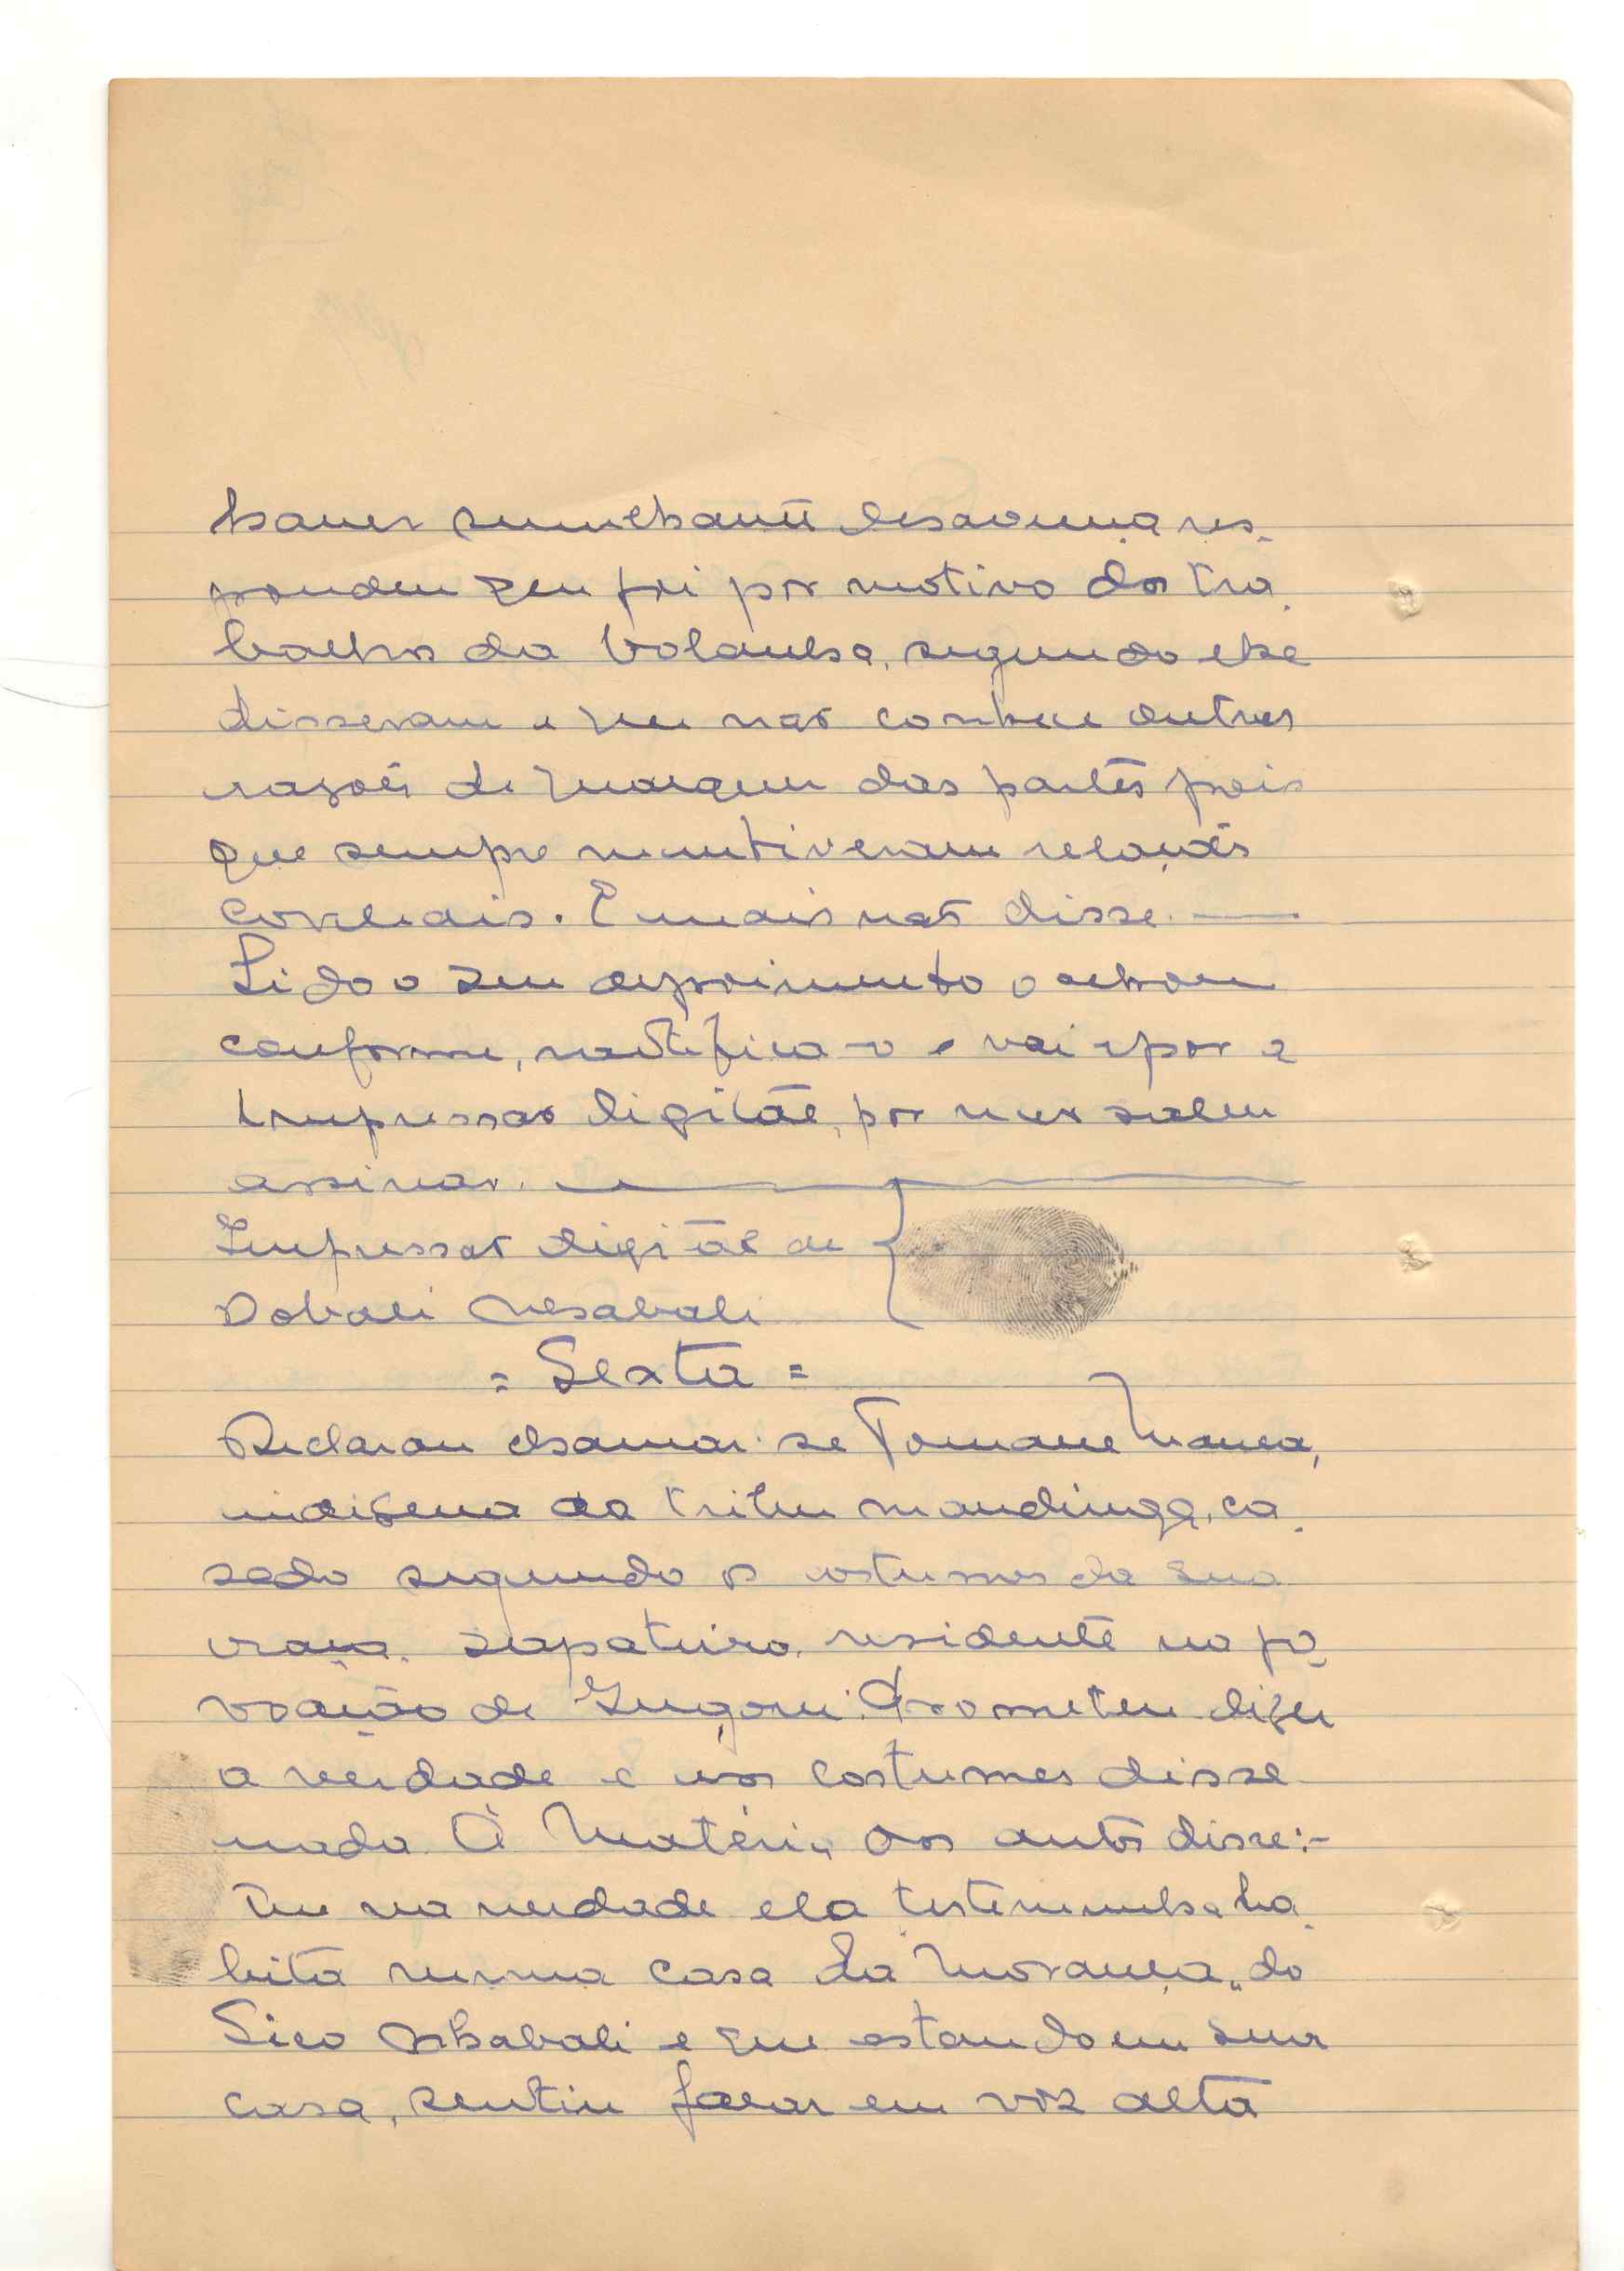 haver semelhante desavença res-
pondeu que foi por motivo dos tra-
balhos da bolanha, segundo lhe
disseram e que não conhece outras
razões de parte das partes pois
que sempre mantiveram relações
cordeais. E mais não disse.
Lido o seu depoimento o achou
conforme, ratifica-o e vai apor a
impressão digitál, por não saber
assinar.
Impressão digitál de
Dobali
= Sexta =
Declarou chamar-se Tomane Mança,
indigena da tribu mandinga, ca-
sado segundo os costumes da sua
raça, sapateiro, residente na po-
voação de Prometeu dizer
a verdade e aos costumes disse
nada. À Matéria dos autos disse:-
Que na verdade ela testemunha ha-
bita numa casa da morança, do
e que estando em sua
casa, sentiu falar em voz alta